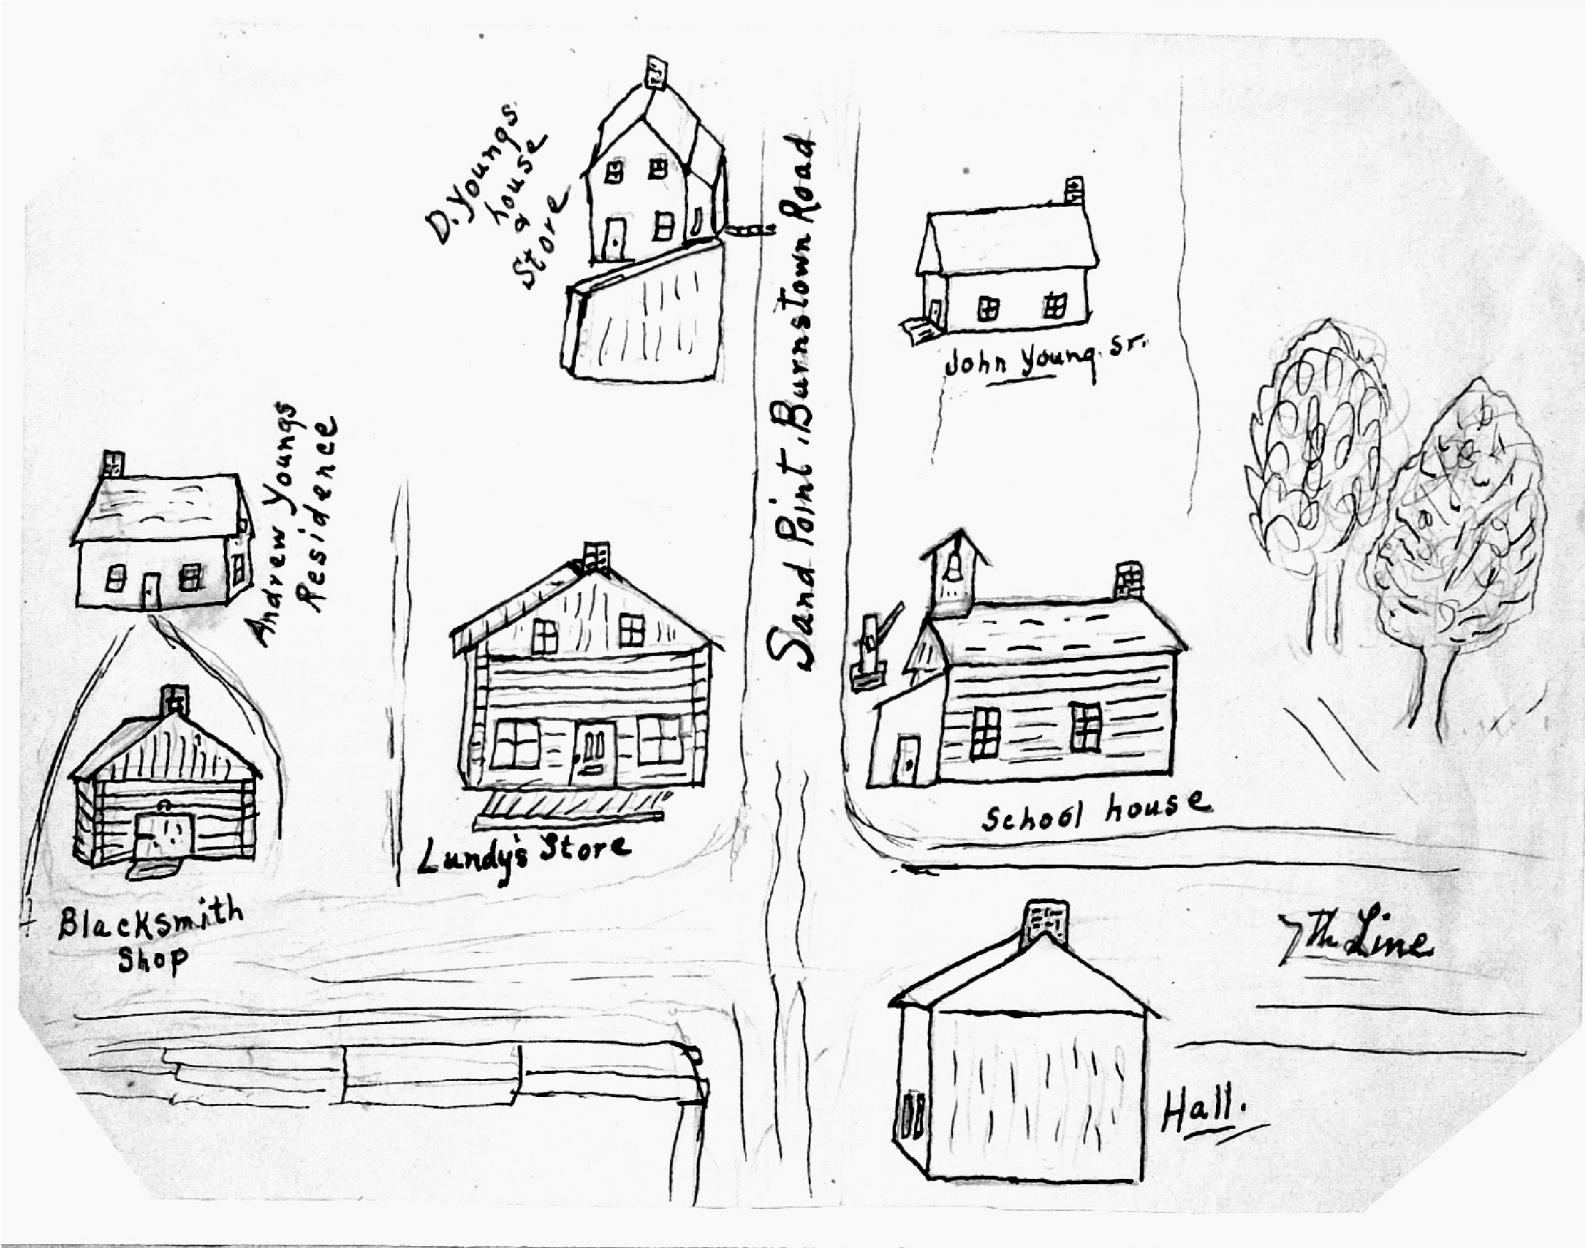 D. Youngs
house
&
Store
Sand Point, Burnstown Road
John Young. Sr.
Andrew Youngs
Residence
Lundy's Store
School house
Blacksmith
Shop
7th Line
Hall.